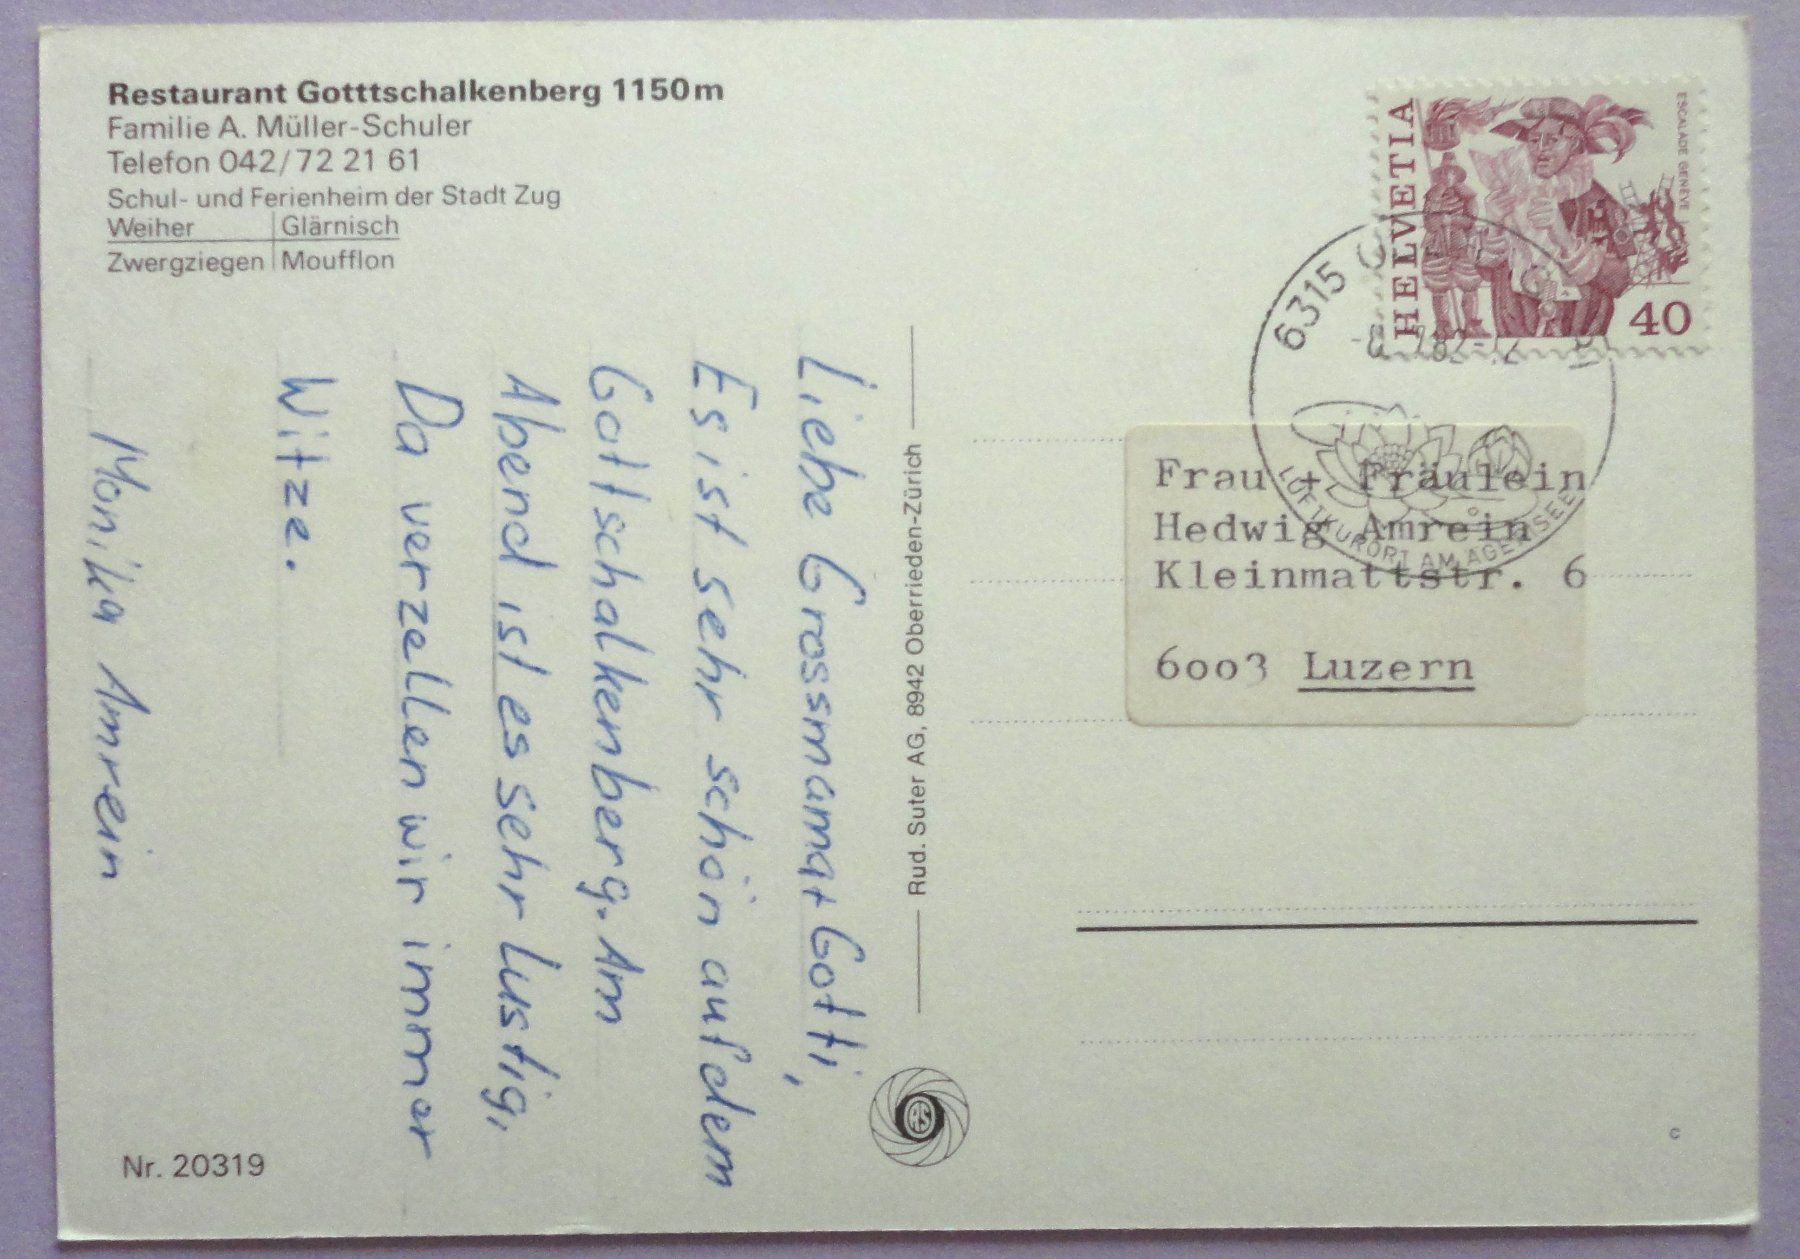 Restaurant Gotttschalkenberg 1150m
Familie A. Müller-Schuler
Telefon 042/72 21 61
Schul- und Ferienheim der Stadt Zug
Weiher | Glärnisch
Zwergziegen | Moufflon
Liebe Grossmama + Gotti,
Es ist sehr schön auf dem
Gottschalkenberg. Am
Abend ist es sehr lustig,
Da verzellen wir immer
Witze.
Monika Amrein
Nr. 20319
Rud. Suter AG, 8942 Oberrieden-Zürich
RS
HELVETIA
ESCALADE GENÈVE
40
6315
LUFTKURORT AM AEGERISEE
Frau + Fräulein
Hedwig Amrein
Kleinmattstr. 6
6003 Luzern
c